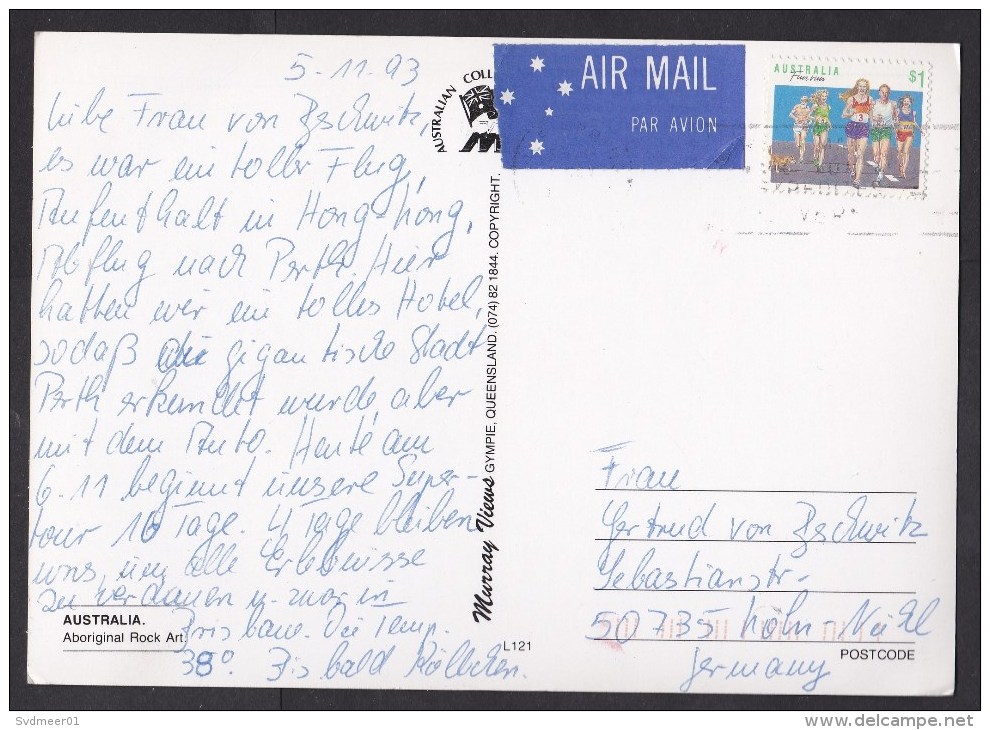 5-11-93
Liebe Frau von Zschwitz,
es war ein toller Flug,
Aufenthalt in Hong-Kong,
Abflug nach Perth. Hier
hatten wir ein tolles Hotel,
sodaß die gigantische Stadt
Perth erkundet wurde, aber
mit dem Auto. Heute am
6-11 beginnt unsere Super-
tour 16 Tage. 4 Tage bleiben
uns, um alle Erlebnisse
zu verdauen u. zwar in
Brisbane. Die Temp.
38° Bis bald
AUSTRALIA.
Aboriginal Rock Art.
AUSTRALIAN COLL
AIR MAIL
PAR AVION
AUSTRALIA
Fun run
$1
Murray Views GYMPIE, QUEENSLAND. (074) 82 1844. COPYRIGHT.
L121
Frau
Gertrud von Zschwitz
Sebastianstr-
50735 Köln-Niehl
Germany
POSTCODE
Svdmeer01
www.delcampe.net